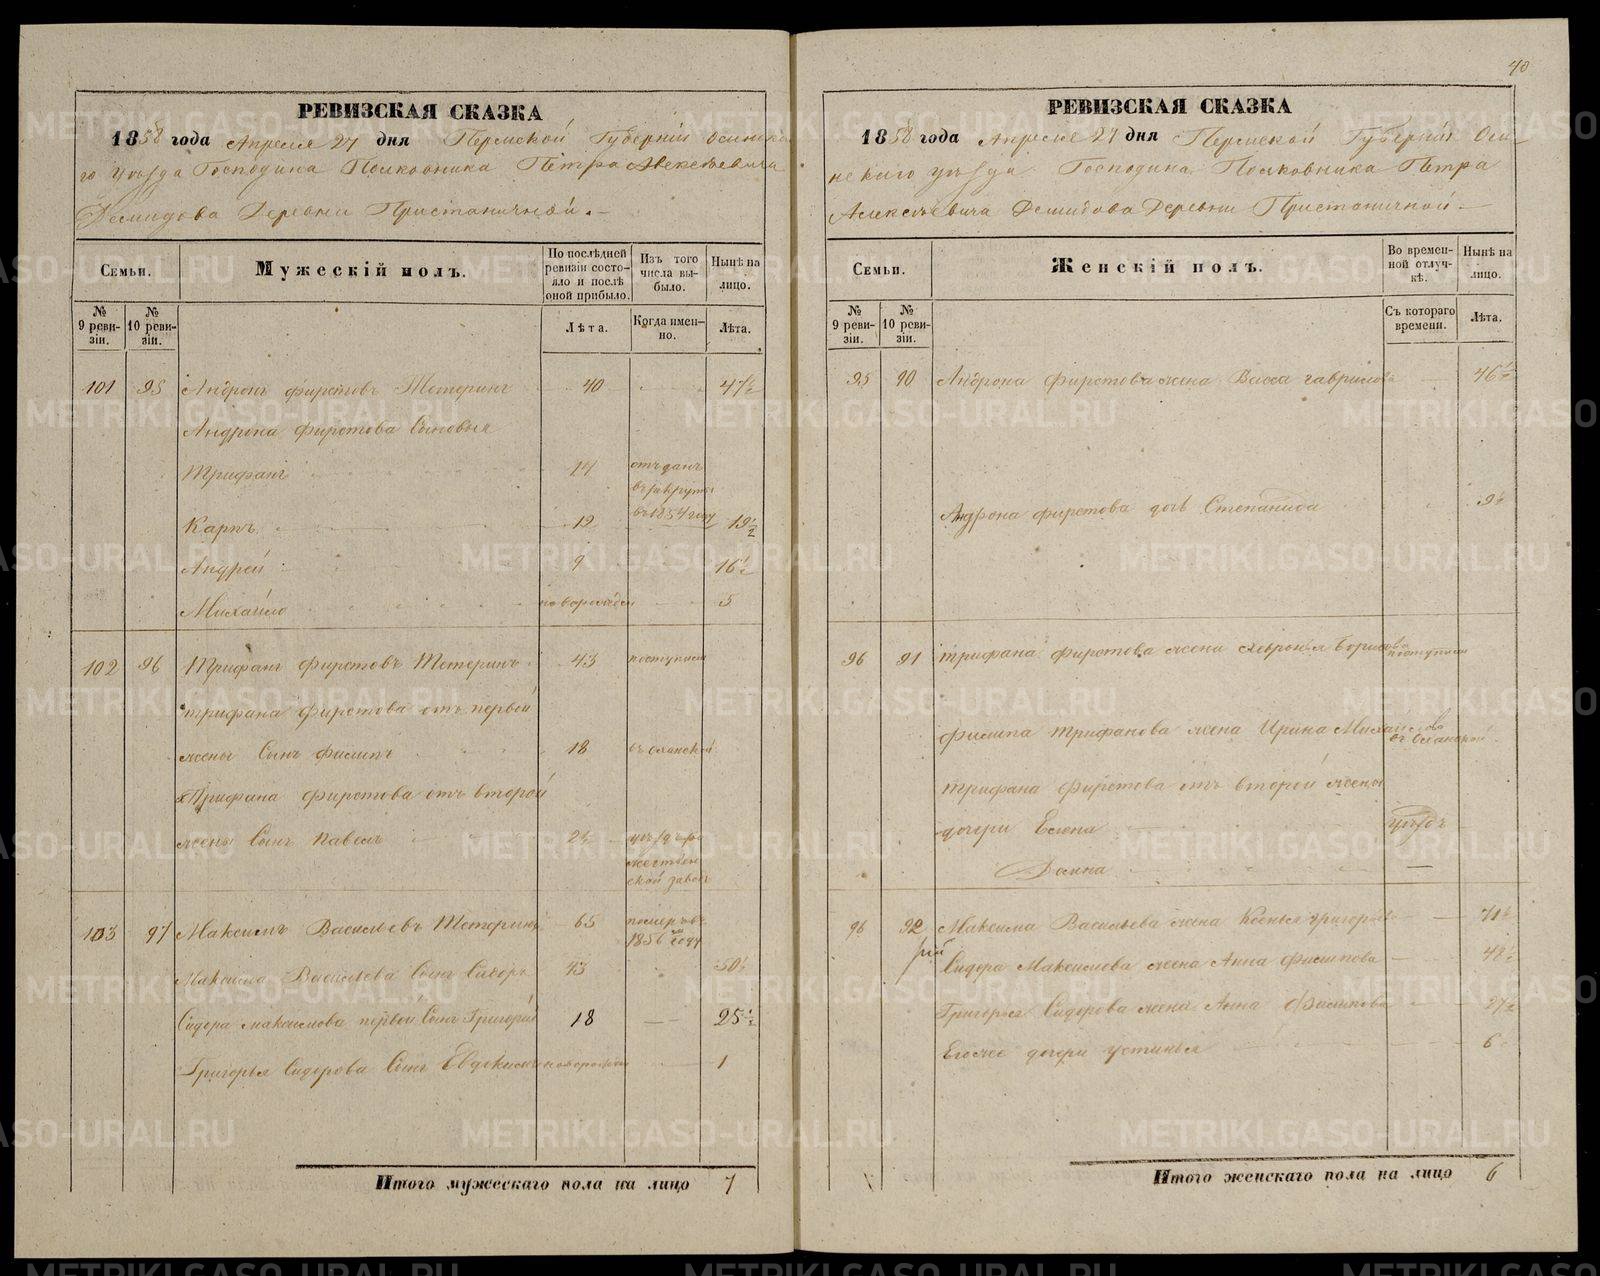 40
РЕВИЗСКАЯ СКАЗКА
1858 года Апреля 27 дня Пермской Губернiи Осинска
го уѣзда Господина Полковника Петра Алексѣевича
Демидова Деревни Пристаничной.
Семьи.
Мужескiй полъ.
По послѣдней ревизiи состояло и послѣ оной прибыло.
Изъ того числа выбыло.
Нынѣ на лицо.
№ 9 ревизiи.
№ 10 ревизiи.
Лѣта.
Когда именно.
Лѣта.
101 95 Андронъ Фирстовъ Тетеринъ 40 47½
Андрона Фирстова Сыновья
Трифанъ 14 отъданъ
въ рекруты
въ 1854 году
Карпъ 12 19½
Андрей 9 16½
Михайло новорожден 5
102 96 Трифанъ Фирстовъ Тетеринъ 43 поступили
Трифана Фирстова отъ первой
жены Сынъ Филипъ 18 въ Оханской
Трифана Фирстова отъ второй
жены Сынъ Павелъ 2½ уѣздъ ро
жествен
ской завод
103 97 Максимъ Васильевъ Тетеринъ 65 померъ въ
1856 году
Максима Васильева Сынъ Сидоръ 43 50½
Сидора Максимова первой Сынъ Григорiй 18 25½
Григорья Сидорова Сынъ Евдокимъ новорожден 1
Итого мужескаго пола на лицо 7
РЕВИЗСКАЯ СКАЗКА
1858 года Апреля 27 дня Пермской Губернiи Оси-
нскаго уѣзда Господина Полковника Петра
Алексѣевича Демидова Деревни Пристаничной
Семьи.
Женскiй полъ.
Во временной отлучкѣ.
Нынѣ на лицо.
№ 9 ревизiи.
№ 10 ревизiи.
Съ котораго времени.
Лѣта.
95 90 Андрона Фирстова жена Васса Гаврилова 46½
Андрона Фирстова дочь Степанида 9½
96 91 Трифана Фирстова жена Хавронья Борисова поступили
Филипа Трифанова жена Ирина Михайлова въ Оханской
Трифана Фирстова отъ второй жены
дочери Елена уѣздъ
Домна
96 92 Максима Васильева жена Ксенья Григорье 71½
Сидора Максимова жена Анна Филипова
Григорья Сидорова жена Анна 27½
Егожее дочери Устинья 6
Итого женскаго пола на лицо 6
METRIKI.GASO-URAL.RU